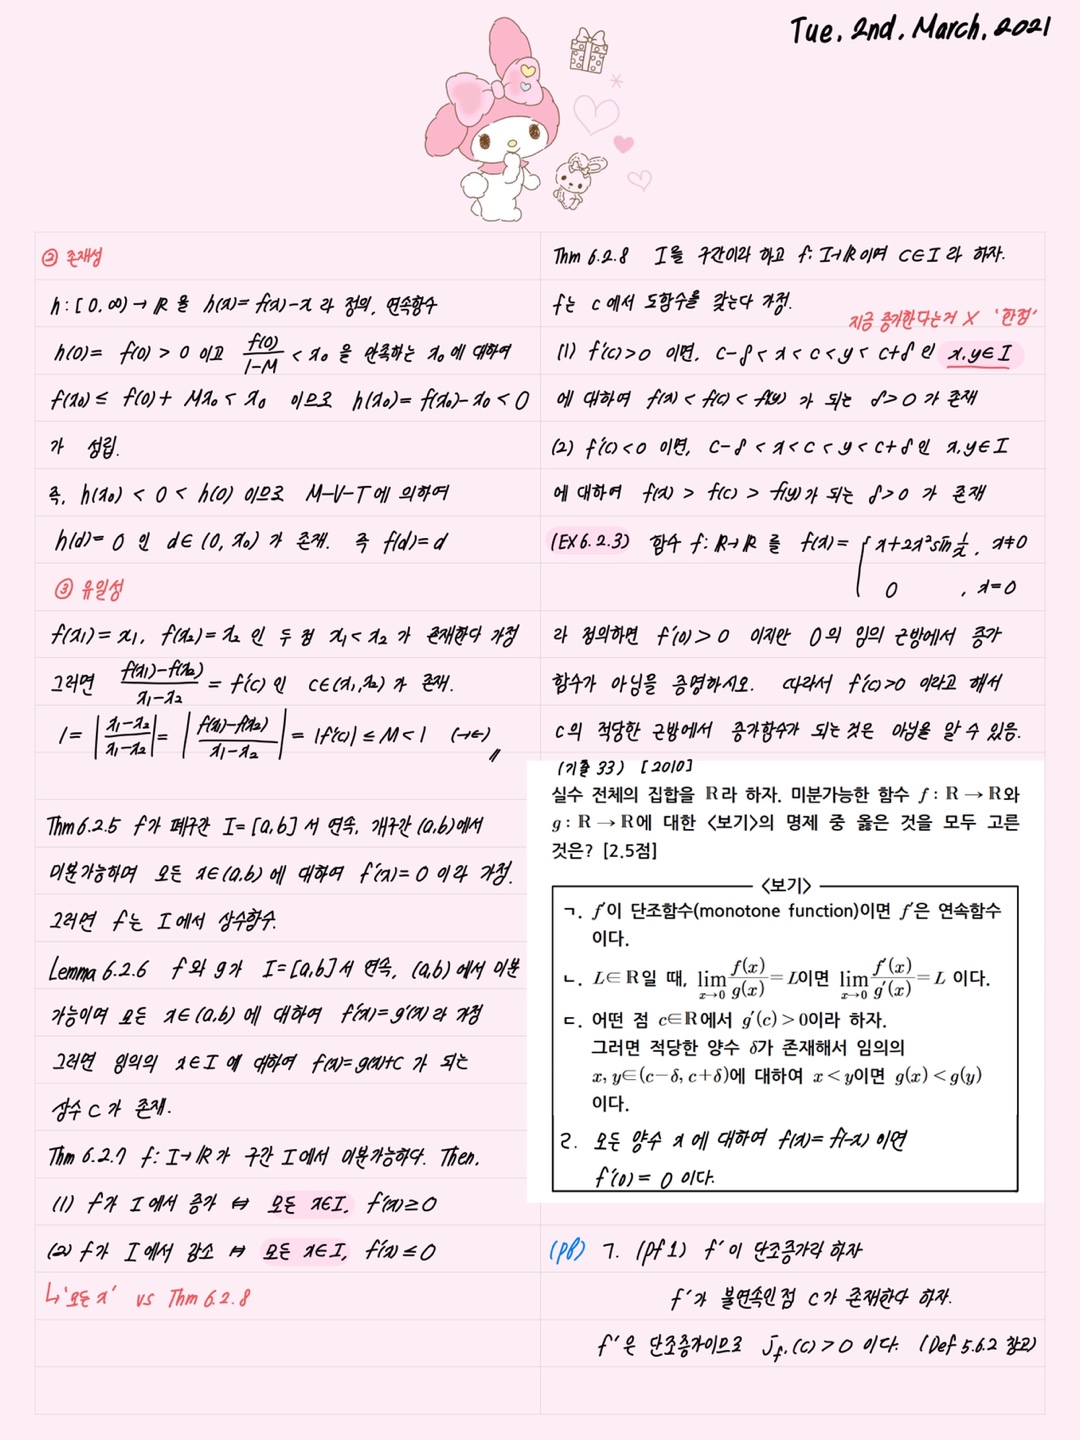 Tue, 2nd, March, 2021
② 존재성
h: [0, ∞) → ℝ 을 h(x) = f(x)-x 라 정의, 연속함수
h(0) = f(0) > 0 이고 f(0)/(1-M) < x₀ 을 만족하는 x₀에 대하여
f(x₀) ≤ f(0) + Mx₀ < x₀ 이므로 h(x₀) = f(x₀)-x₀ < 0
가 성립.
즉, h(x₀) < 0 < h(0) 이므로 M-V-T에 의하여
h(d) = 0 인 d∈(0, x₀)가 존재. 즉 f(d) = d
③ 유일성
f(x₁) = x₁, f(x₂) = x₂ 인 두 점 x₁ < x₂ 가 존재한다 가정
그러면 (f(x₁)-f(x₂))/(x₁-x₂) = f'(c) 인 c∈(x₁, x₂) 가 존재.
1 = |(x₁-x₂)/(x₁-x₂)| = |(f(x₁)-f(x₂))/(x₁-x₂)| = |f'(c)| ≤ M < 1 (→←) //
Thm 6.2.5 f가 폐구간 I = [a,b]서 연속, 개구간 (a,b)에서
미분가능하며 모든 x∈(a,b)에 대하여 f'(x) = 0 이라 가정.
그러면 f는 I에서 상수함수.
Lemma 6.2.6 f와 g가 I = [a,b]서 연속, (a,b)에서 미분
가능이며 모든 x∈(a,b)에 대하여 f'(x) = g'(x)라 가정
그러면 임의의 x∈I에 대하여 f(x) = g(x)+C 가 되는
상수 C가 존재.
Thm 6.2.7 f: I→ℝ가 구간 I에서 미분가능하다. Then,
(1) f가 I에서 증가 ⇔ 모든 x∈I, f'(x) ≥ 0
(2) f가 I에서 감소 ⇔ 모든 x∈I, f'(x) ≤ 0
↳ '모든 x' vs Thm 6.2.8
Thm 6.2.8 I를 구간이라 하고 f: I→ℝ이며 c∈I라 하자.
f는 c에서 도함수를 갖는다 가정.
지금 증가한다는거 X '한점'
(1) f'(c)>0 이면, c-δ < x < c < y < c+δ 인 x,y∈I
에 대하여 f(x) < f(c) < f(y) 가 되는 δ>0 가 존재
(2) f'(c)<0 이면, c-δ < x < c < y < c+δ인 x,y∈I
에 대하여 f(x) > f(c) > f(y)가 되는 δ>0 가 존재
(EX 6.2.3) 함수 f: ℝ→ℝ를 f(x) = { x+2x²sin 1/x, x≠0
0, x=0
라 정의하면 f'(0)>0 이지만 0의 임의 근방에서 증가
함수가 아님을 증명하시오. 따라서 f'(c)>0 이라고 해서
c의 적당한 근방에서 증가함수가 되는것은 아님을 알 수 있음.
(기출 33) [2010]
실수 전체의 집합을 ℝ라 하자. 미분가능한 함수 f : ℝ → ℝ와
g : ℝ → ℝ에 대한 <보기>의 명제 중 옳은 것을 모두 고른
것은? [2.5점]
<보기>
ㄱ. f'이 단조함수(monotone function)이면 f'은 연속함수
이다.
ㄴ. L∈ℝ일 때, lim x→0 f(x)/g(x) = L이면 lim x→0 f'(x)/g'(x) = L 이다.
ㄷ. 어떤 점 c∈ℝ에서 g'(c) > 0이라 하자.
그러면 적당한 양수 δ가 존재해서 임의의
x, y∈(c-δ, c+δ)에 대하여 x < y이면 g(x) < g(y)
이다.
ㄹ. 모든 양수 x에 대하여 f(x) = f(-x) 이면
f'(0) = 0 이다.
(pf) ㄱ. (pf 1) f'이 단조증가라 하자
f'가 불연속인 점 c가 존재한다 하자.
f'은 단조증가이므로 j_f'(c) > 0 이다. (Def 5.6.2 참고)